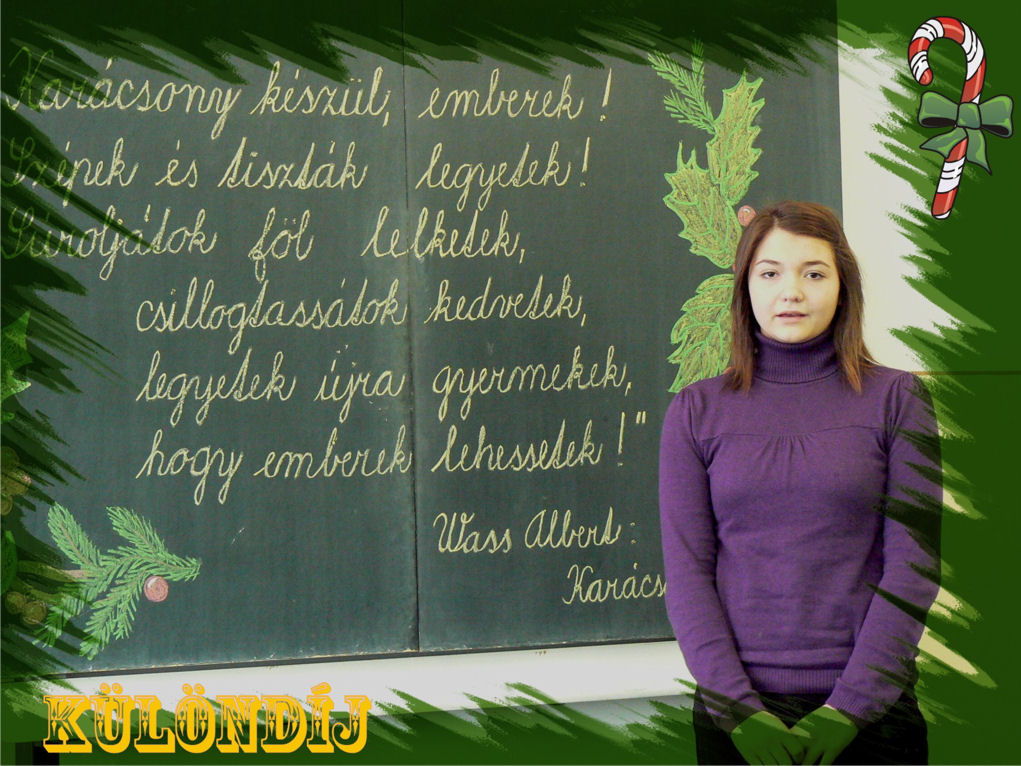 Karácsony készül, emberek!
Szépek és tiszták legyetek!
Súroljátok föl lelketek,
csillogtassátok kedvetek,
legyetek újra gyermekek,
hogy emberek lehessetek!"
Wass Albert:
Karács
KÜLÖNDÍJ